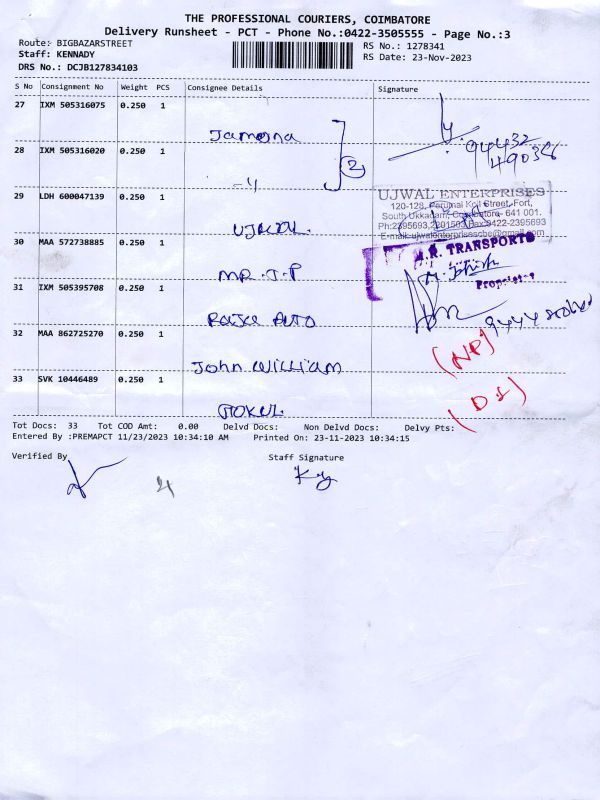 THE PROFESSIONAL COURIERS, COIMBATORE
Delivery Runsheet - PCT - Phone No.:0422-3505555 - Page No.:3
Route: BIGBAZARSTREET
Staff: KENNADY
DRS No.: DCJB127834103
RS No.: 1278341
RS Date: 23-Nov-2023
S No Consignment No Weight PCS Consignee Details Signature
27 IXM 505316075 0.250 1
Jamona
28 IXM 505316020 0.250 1
2
-4
29 LDH 600047139 0.250 1
UJWAL.
UJWAL ENTERPRISES
120-128, Perumal Koil Street, Fort,
South Ukkadam, Coimbatore- 641 001.
Ph:2395693, Fax:0422-2395693
E-mail:ujwalenterprisescbe@gmail.com
30 MAA 572738885 0.250 1
MR. J.P
TRANSPORTS
Proprietor
31 IXM 505395708 0.250 1
Raja Auto
32 MAA 862725270 0.250 1
John William
(NP)
33 SVK 10446489 0.250 1
GOKUL.
(D.S)
Tot Docs: 33 Tot COD Amt: 0.00 Delvd Docs: Non Delvd Docs: Delvy Pts:
Entered By :PREMAPCT 11/23/2023 10:34:10 AM Printed On: 23-11-2023 10:34:15
Verified By Staff Signature